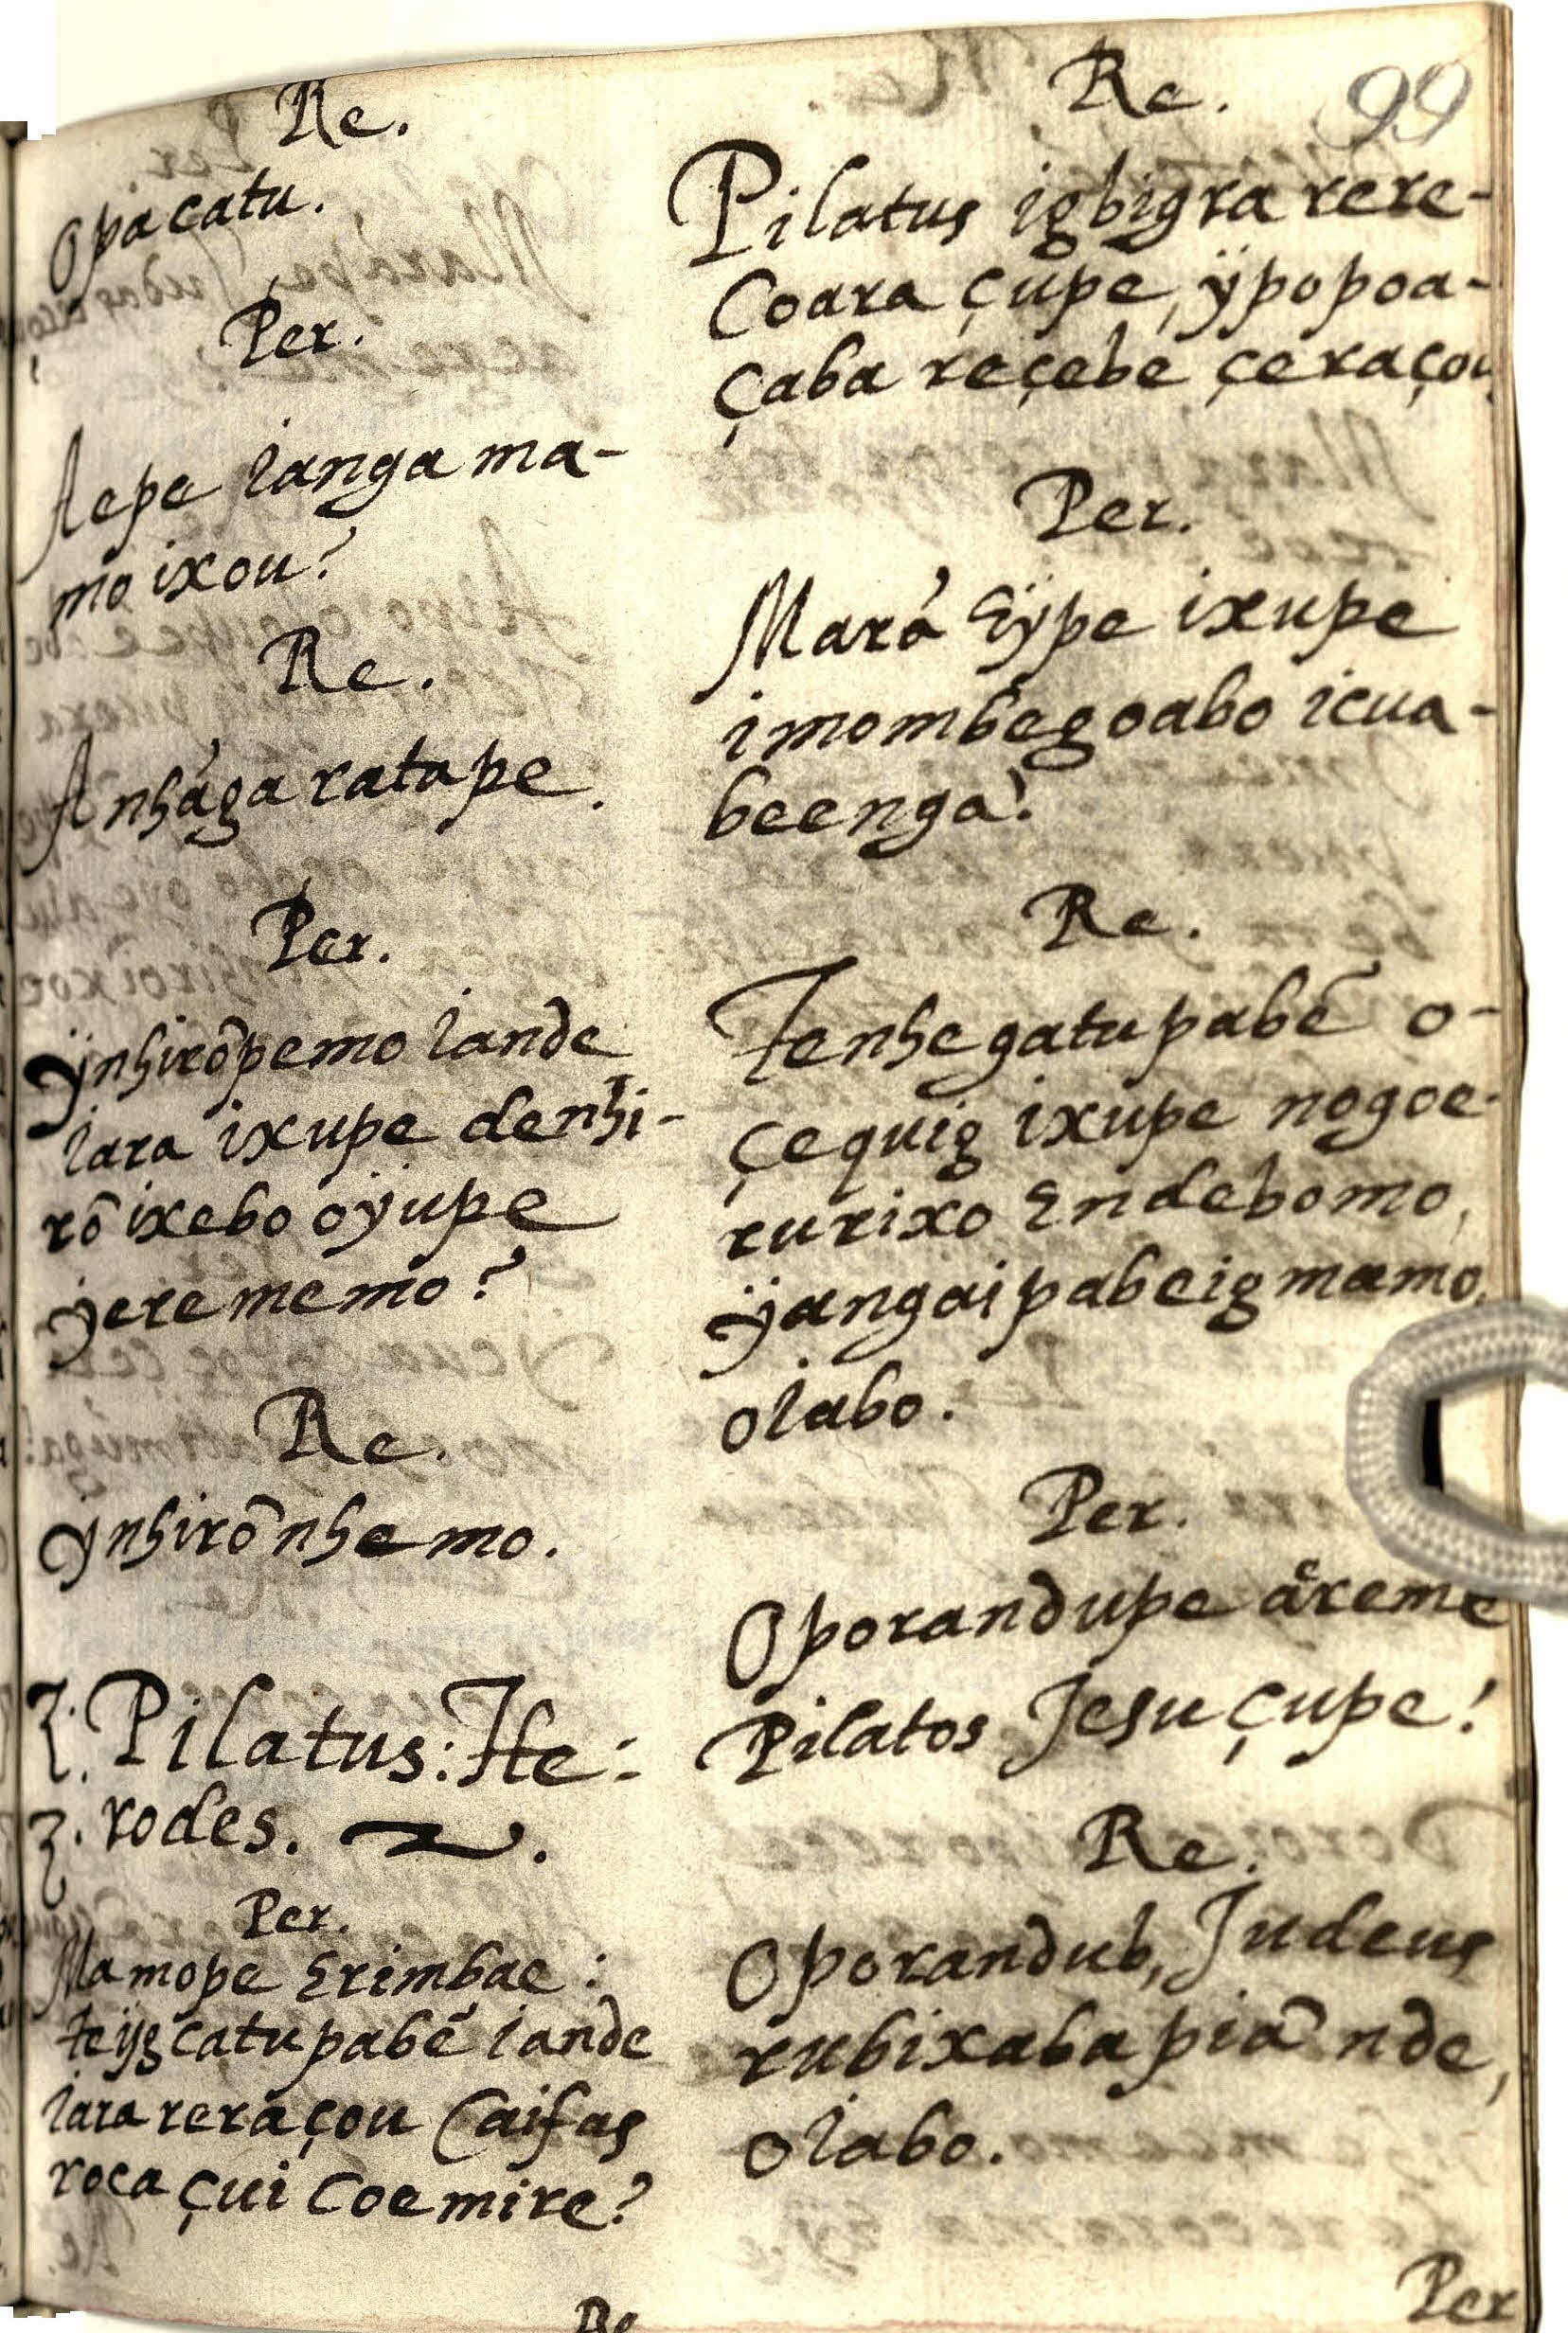 Re.
Opacatu.
Per.
Aepe ianga ma-
mo ixou?
Re.
Anhãga ratape.
Per.
ynhirõpemo iande
iara ixupe denhi-
rõ ixebo oÿupe
yerememo?
Re.
ynhirõ nhemo.
Pilatus: He:
rodes.
Per.
Mamope Erimbae:
teÿg catu pabẽ iande
iara reraçou Caifas
roca çui Coemire?
Re
99
Re.
Pilatus igbigra rere-
Coara çupe, ÿpopoa-
çaba reçebe çeraçou
Per.
Marã Eÿpe ixupe
imombegoabo icua-
beenga?
Re.
Tenhe gatu pabẽ o-
çequig ixupe nogoe-
rurixo Endebomo,
ÿangaipabeig mamo,
oiabo.
Per.
Oporandupe ãreme
Pilatos Jesu çupe?
Re.
Oporandub, Judeus
rubixaba piã nde,
oiabo.
Per